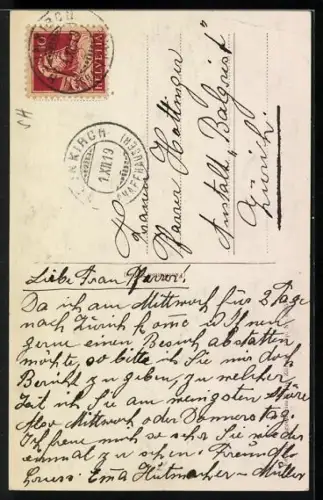 HELVETIA
10
NEUNKIRCH
1.XII.19
(SCHAFFHAUSEN)
SH
Frau
Pfarrer Hottinger
Anstalt "Balgrist"
Zürich
Liebe Frau Pfarrer!
Da ich am Mittwoch für 2 Tage
nach Zürich kome u. Ihnen
gerne einen Besuch abstatten
möchte, so bitte ich Sie mir doch
Bericht zu geben, zu welcher
Zeit ich Sie am wenigsten störe
Also Mittwoch oder Donnerstag.
Ich freue mich so sehr Sie wieder
einmal zu sehen. Freundlo
Gruss. Ema Hutmacher-Müller